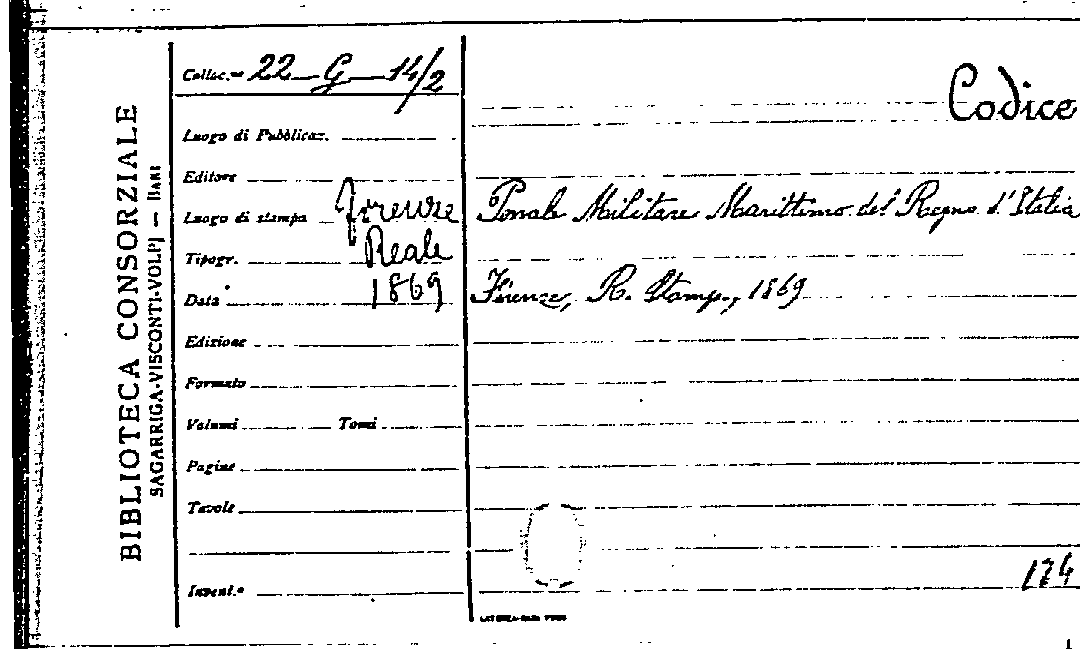 BIBLIOTECA CONSORZIALE
SAGARRIGA-VISCONTI-VOLPI — BARI
Colloc.ne 22 — G — 14/2
Luogo di Pubblicaz.
Editore
Luogo di stampa Firenze
Tipogr. Reale
Data 1869
Edizione
Formato
Volumi Tomi
Pagine
Tavole
Invent.e
Codice
Penale Militare Marittimo del Regno d'Italia
Firenze, R. Stamp., 1869
174